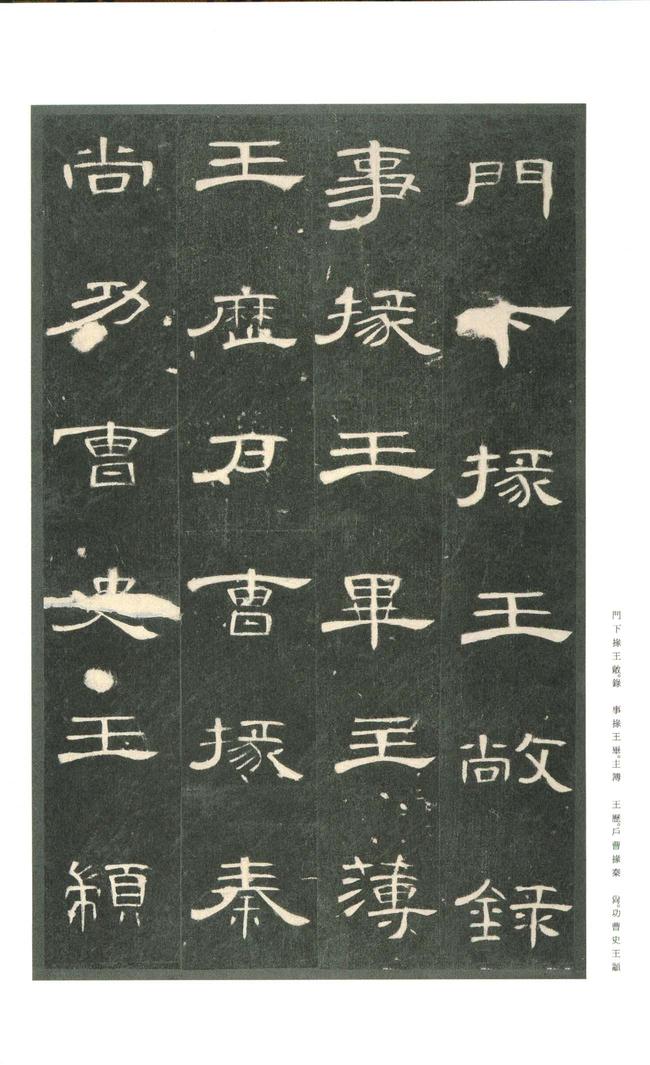 門下掾王敞錄
事掾王畢主薄
王歷户曹掾秦
尚功曹史王顓
門下掾王敞。錄 事掾王畢。主簿 王歷。戶曹掾秦 尙。功曹史王顓